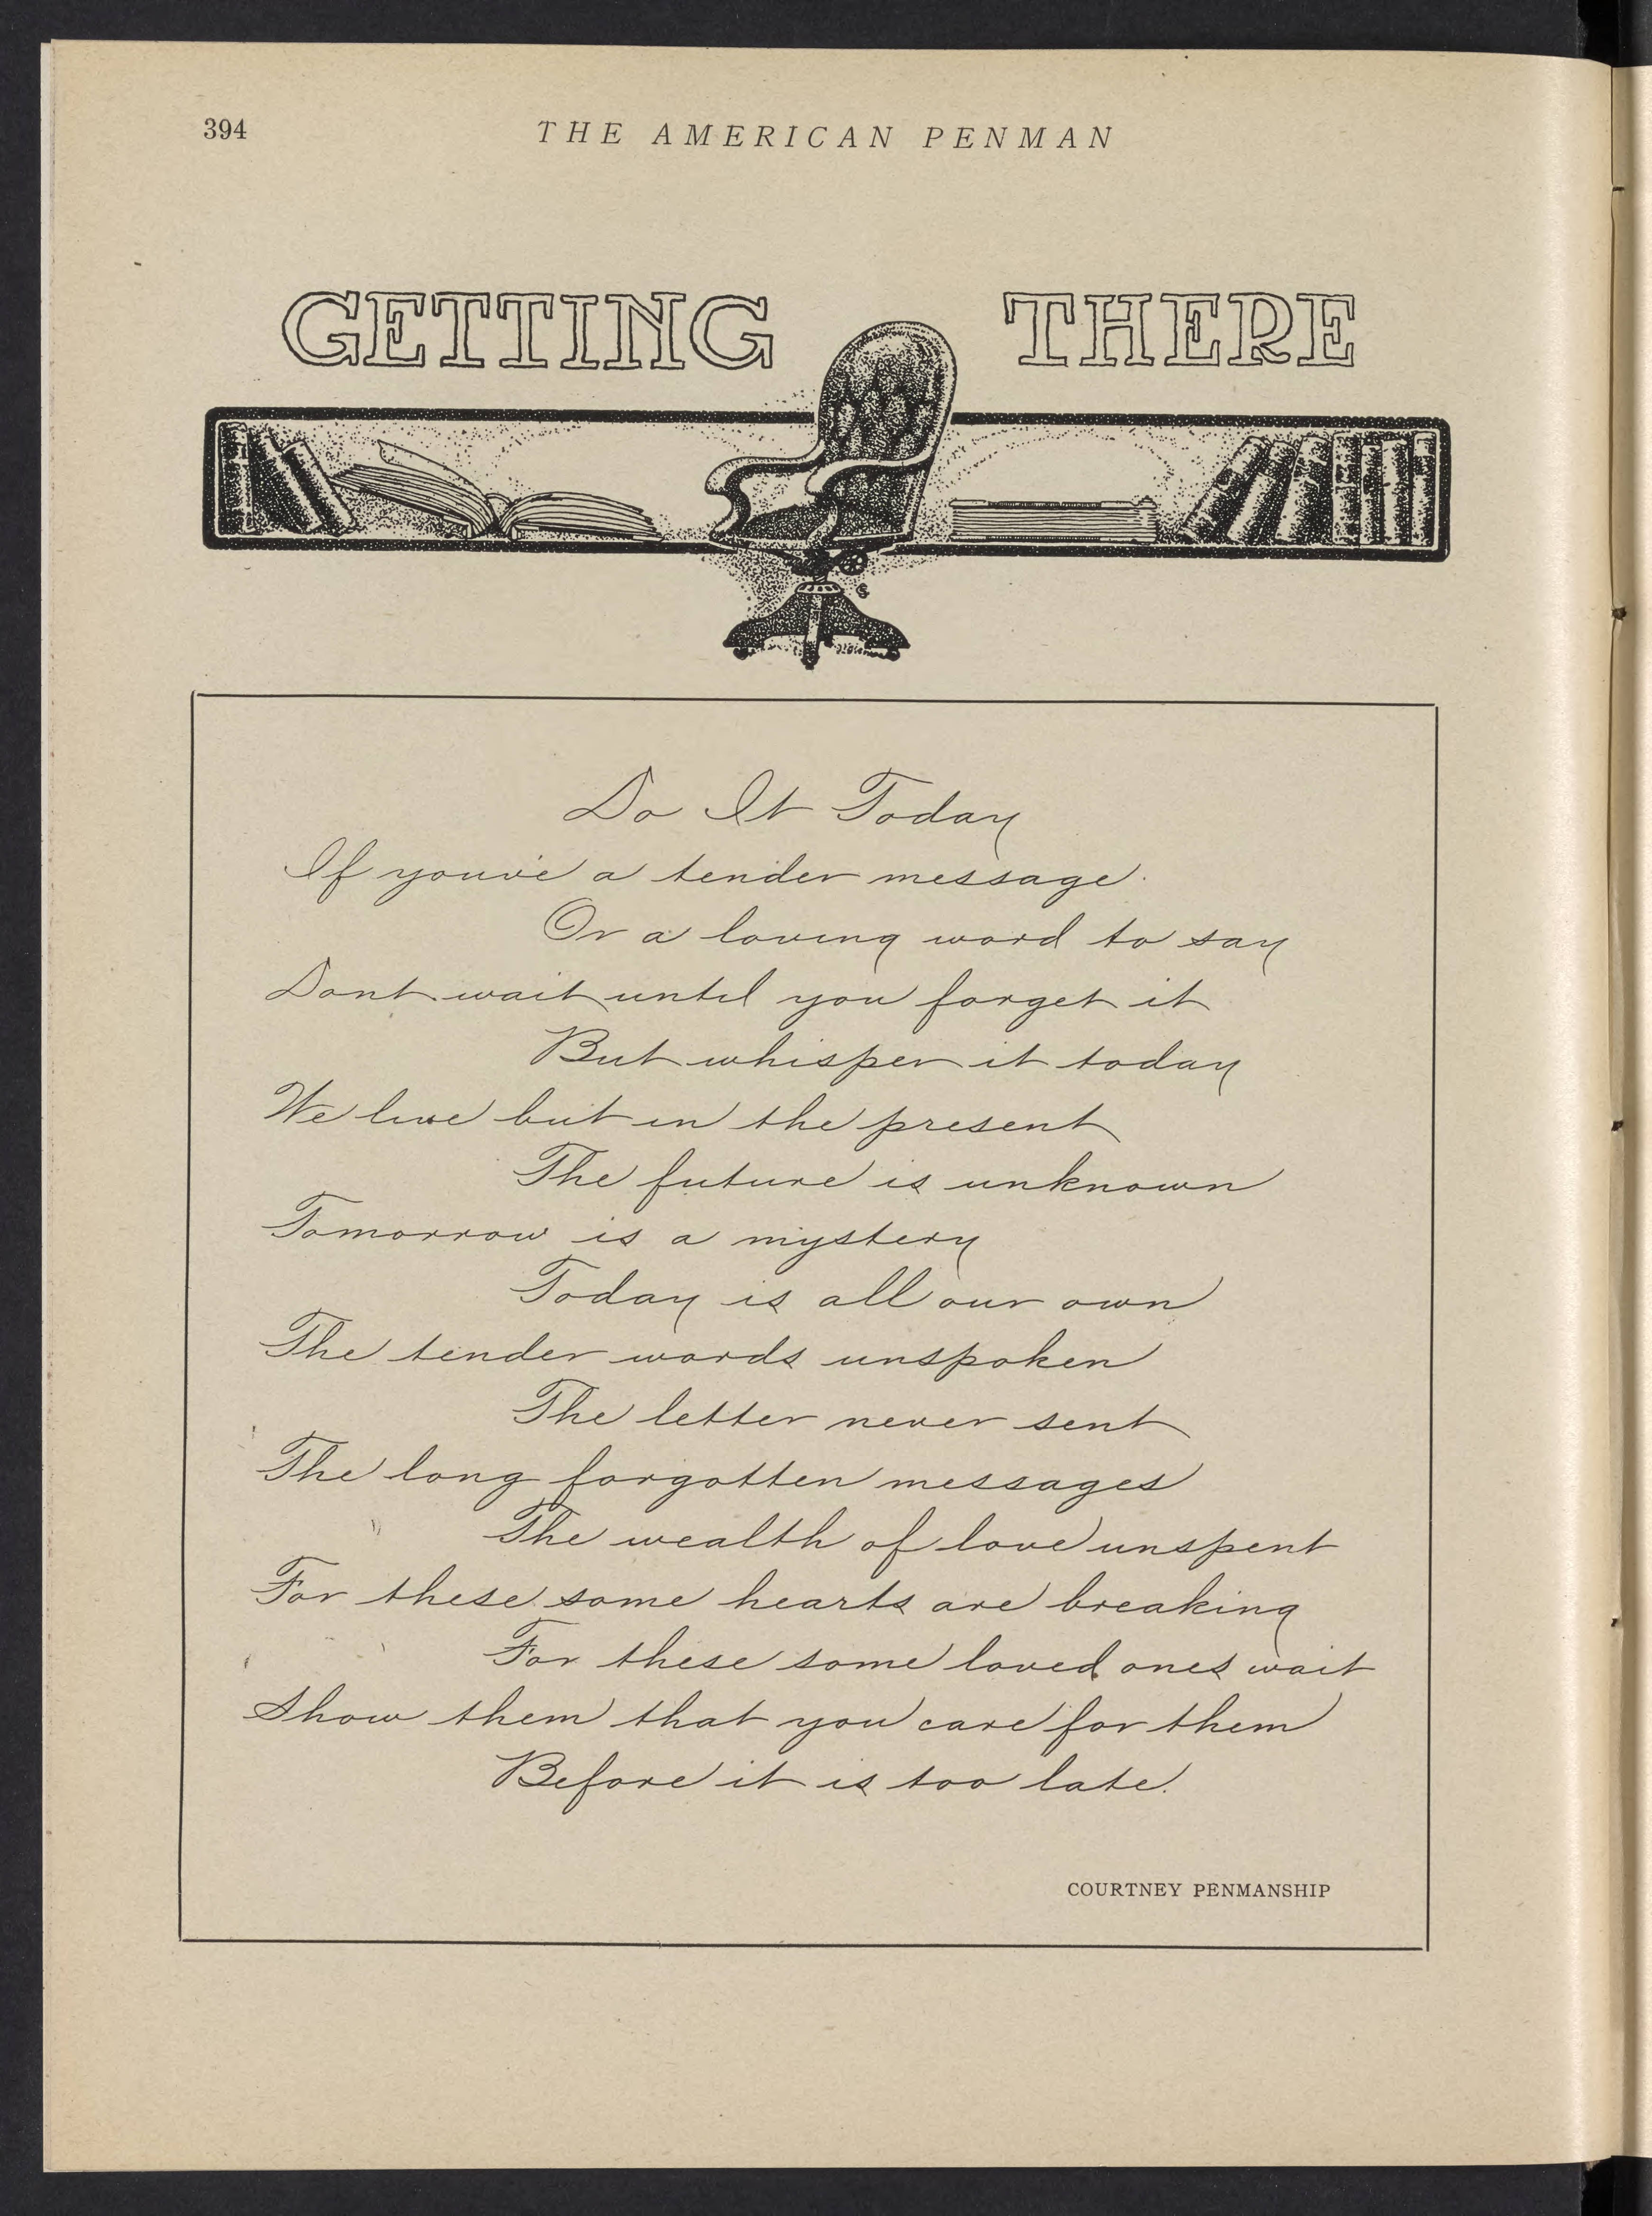 394
THE AMERICAN PENMAN
GETTING THERE
Do It Today
If youv'e a tender message.
Or a loving word to say
Dont wait until you forget it
But whisper it today
We live but in the present
The future is unknown
Tomorrow is a mystery
Today is all our own
The tender words unspoken
The letter never sent
The long forgotten messages
The wealth of love unspent
For these some hearts are breaking
For these some loved ones wait
Show them that you care for them
Before it is too late.
COURTNEY PENMANSHIP